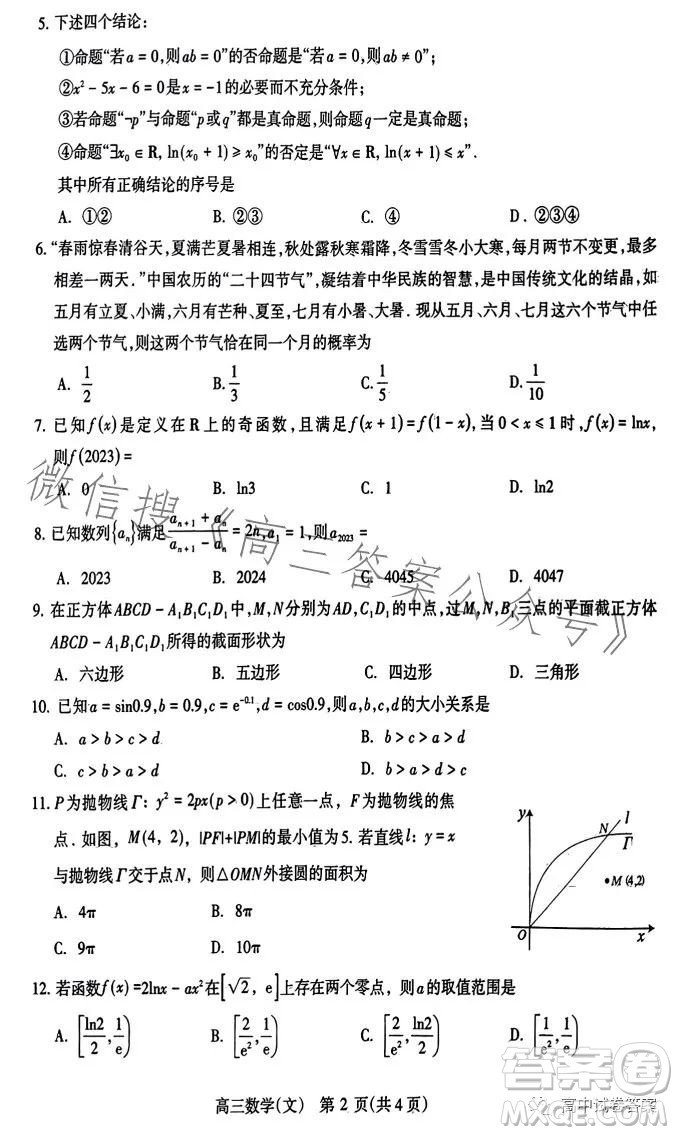 5. 下述四个结论:
①命题“若a = 0,则ab = 0”的否命题是“若a = 0,则ab ≠ 0”;
②x² - 5x - 6 = 0是x = -1的必要而不充分条件;
③若命题“¬p”与命题“p或q”都是真命题,则命题q一定是真命题;
④命题“∃x₀ ∈ R, ln(x₀ + 1) ⩾ x₀”的否定是“∀x ∈ R, ln(x + 1) ⩽ x”.
其中所有正确结论的序号是
A. ①② B. ②③ C. ④ D. ②③④
6. “春雨惊春清谷天,夏满芒夏暑相连,秋处露秋寒霜降,冬雪雪冬小大寒,每月两节不变更,最多
相差一两天.”中国农历的“二十四节气”,凝结着中华民族的智慧,是中国传统文化的结晶,如
五月有立夏、小满,六月有芒种、夏至,七月有小暑、大暑.现从五月、六月、七月这六个节气中任
选两个节气,则这两个节气恰在同一个月的概率为
A. 1/2 B. 1/3 C. 1/5 D. 1/10
7. 已知f(x)是定义在R上的奇函数,且满足f(x + 1) = f(1 - x),当0 < x ⩽ 1时,f(x) = lnx,
则f(2023) =
A. 0 B. ln3 C. 1 D. ln2
8. 已知数列{aₙ}满足(aₙ₊₁ + aₙ)/(aₙ₊₁ - aₙ) = 2n,a₁ = 1,则a₂₀₂₃ =
A. 2023 B. 2024 C. 4045 D. 4047
9. 在正方体ABCD - A₁B₁C₁D₁中,M,N分别为AD,C₁D₁的中点,过M,N,B₁三点的平面截正方体
ABCD - A₁B₁C₁D₁所得的截面形状为
A. 六边形 B. 五边形 C. 四边形 D. 三角形
10. 已知a = sin0.9,b = 0.9,c = e⁻⁰·¹,d = cos0.9,则a,b,c,d的大小关系是
A. a > b > c > d B. b > c > a > d
C. c > b > a > d D. a > b > d > c
11. P为抛物线Γ: y² = 2px(p > 0)上任意一点, F为抛物线的焦
点.如图, M(4, 2), |PF|+|PM|的最小值为5. 若直线l: y = x
与抛物线Γ交于点N, 则△OMN外接圆的面积为
A. 4π B. 8π
C. 9π D. 10π
y
N
l
Γ
M (4,2)
O
x
12. 若函数f(x) =2lnx - ax²在[√2, e]上存在两个零点, 则a的取值范围是
A. [ln2/2, 1/e) B. [2/e², 1/e) C. [2/e², ln2/2) D. [1/e², 1/e)
高三数学(文) 第 2 页(共 4 页)
微信搜《高三答案公众号》
答案圈
高中试卷答案
MXQE.COM